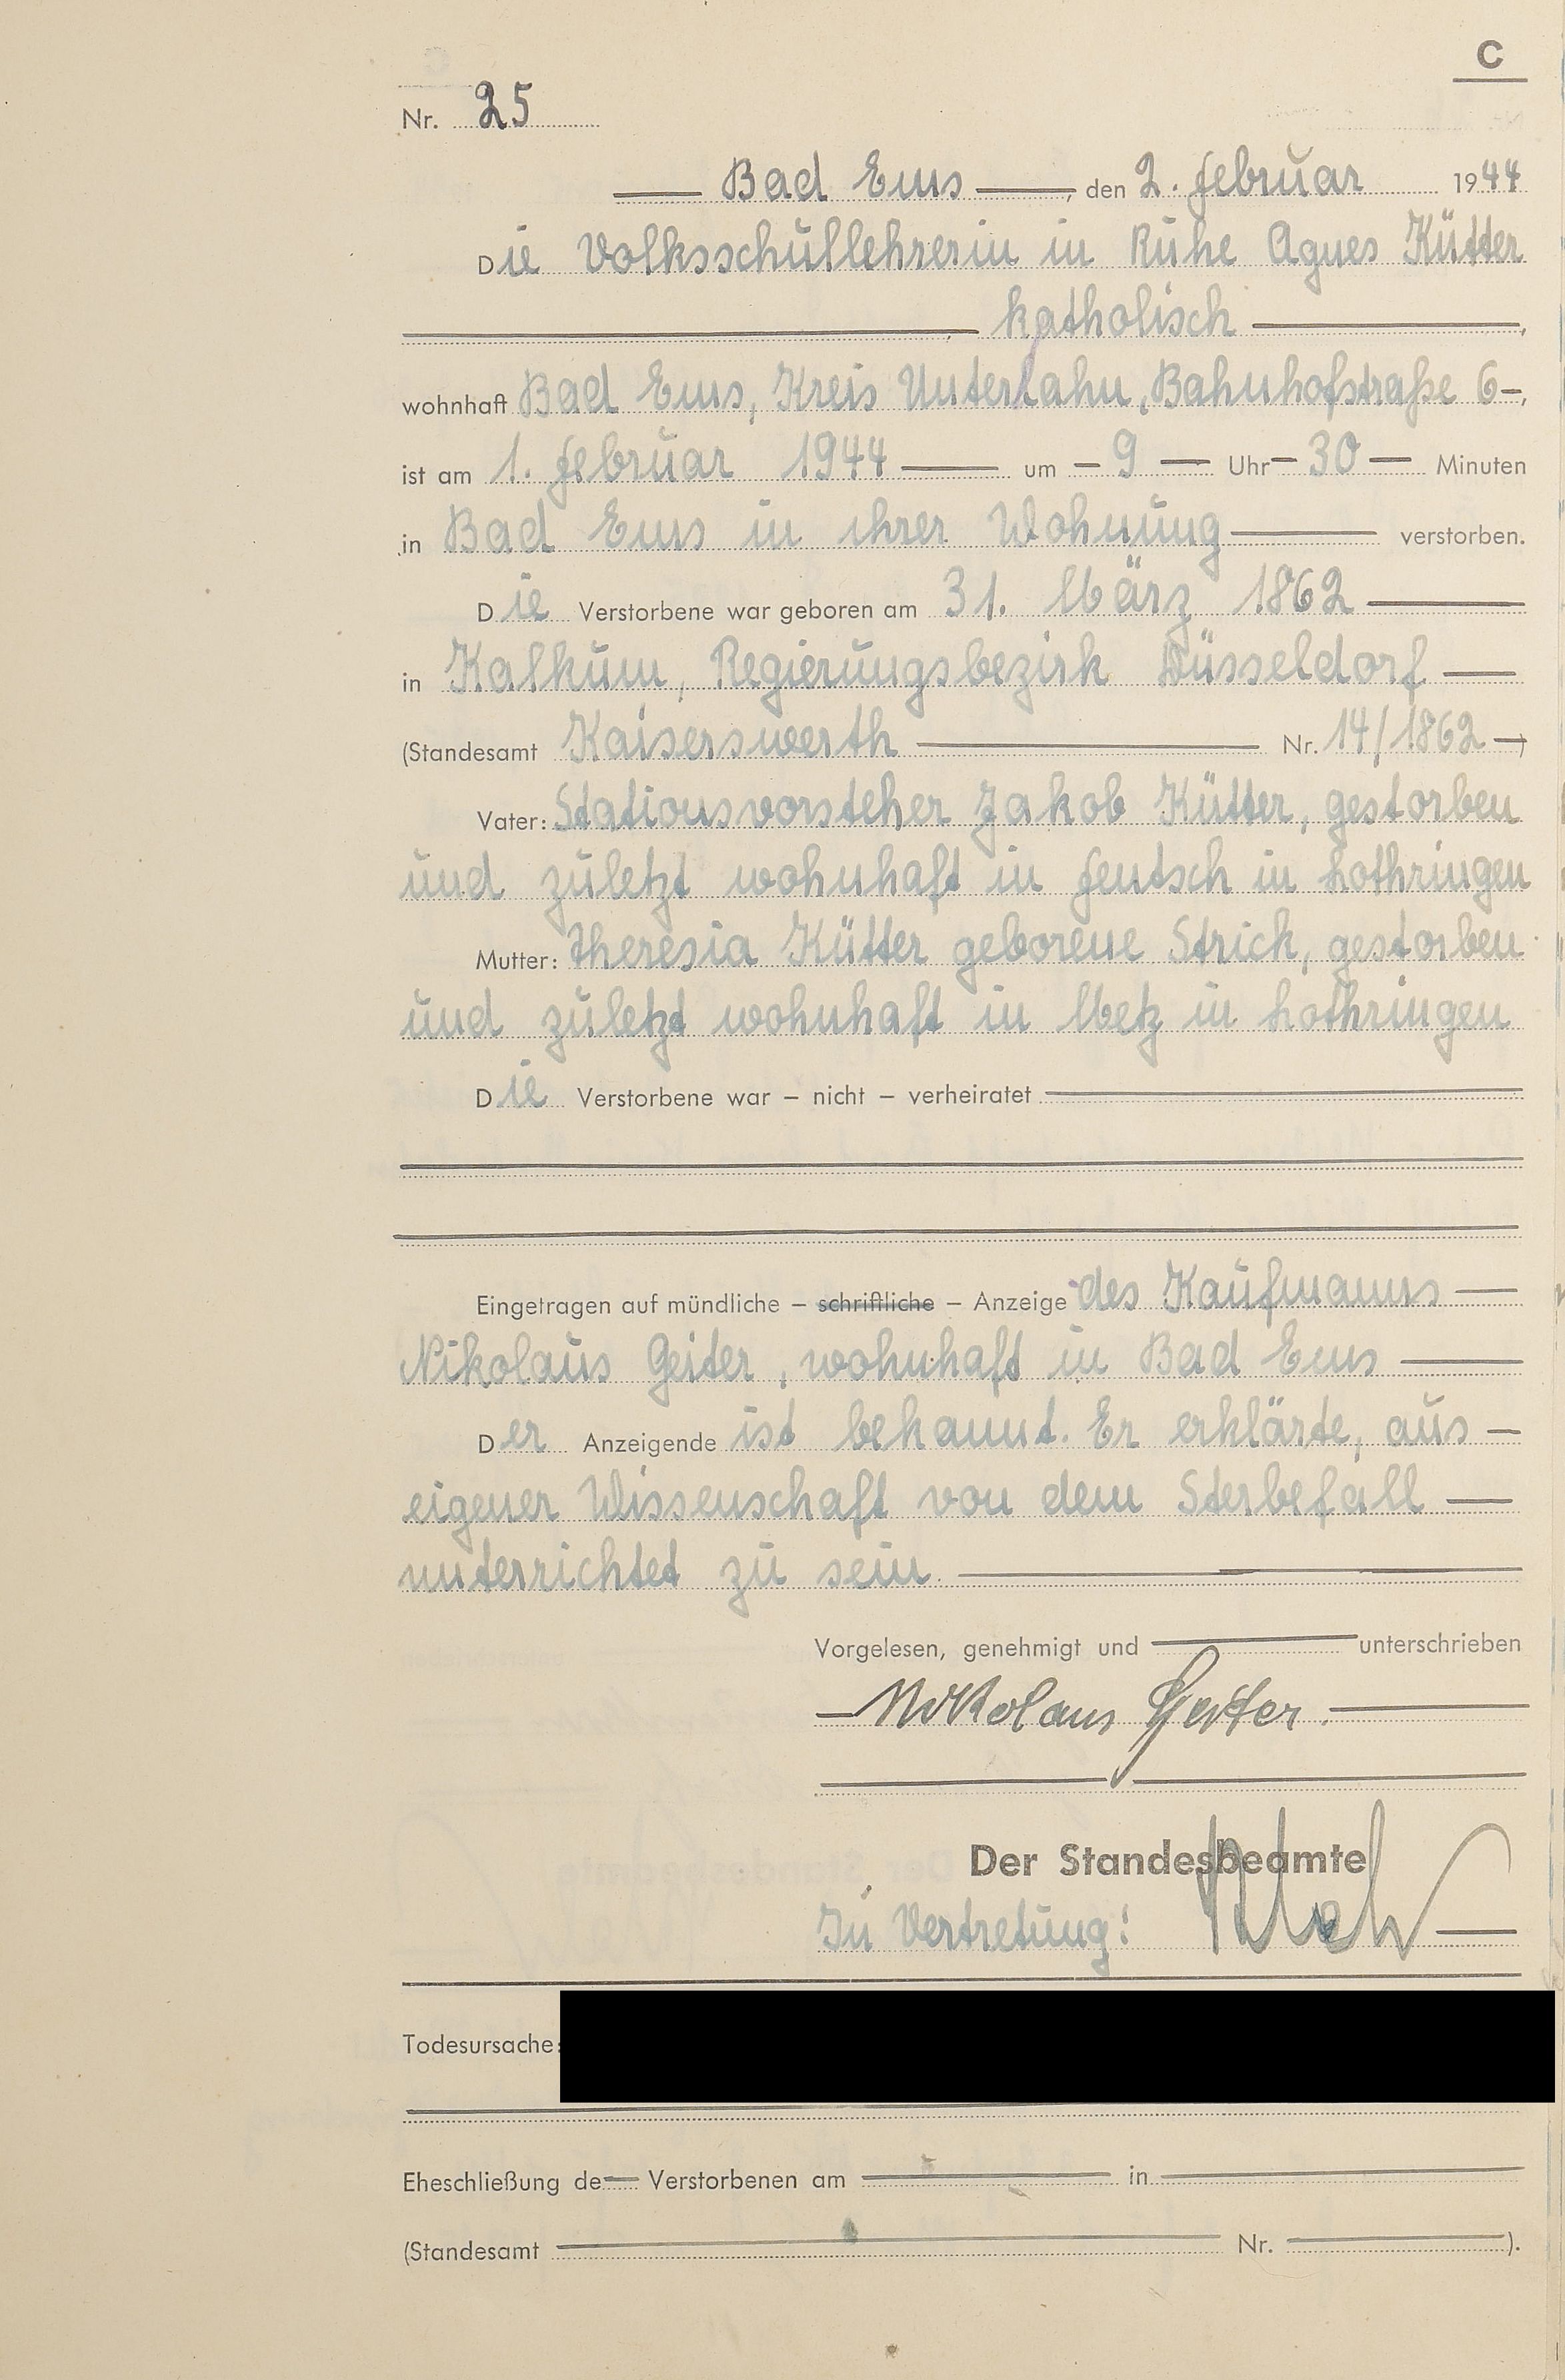 C
Nr. 25
Bad Ems, den 2. Februar 1944
Die Volksschullehrerin in Ruhe Agnes Kütter
katholisch,
wohnhaft Bad Ems, Kreis Unterlahn, Bahnhofstraße 6,
ist am 1. Februar 1944 um 9 Uhr 30 Minuten
in Bad Ems in ihrer Wohnung verstorben.
Die Verstorbene war geboren am 31. März 1862
in Kalkum, Regierungsbezirk Düsseldorf
(Standesamt Kaiserswerth Nr. 14/1862)
Vater: Stationsvorsteher Jakob Kütter, gestorben
und zuletzt wohnhaft in Fentsch in Lothringen
Mutter: Theresia Kütter geborene Strick, gestorben
und zuletzt wohnhaft in Metz in Lothringen
Die Verstorbene war – nicht – verheiratet
Eingetragen auf mündliche – schriftliche – Anzeige des Kaufmanns
Nikolaus Geiter, wohnhaft in Bad Ems
Der Anzeigende ist bekannt. Er erklärte, aus
eigener Wissenschaft von dem Sterbefall
unterrichtet zu sein.
Vorgelesen, genehmigt und unterschrieben
Nikolaus Geiter.
Der Standesbeamte
In Vertretung:
Todesursache:
Eheschließung de Verstorbenen am in
(Standesamt Nr. ).